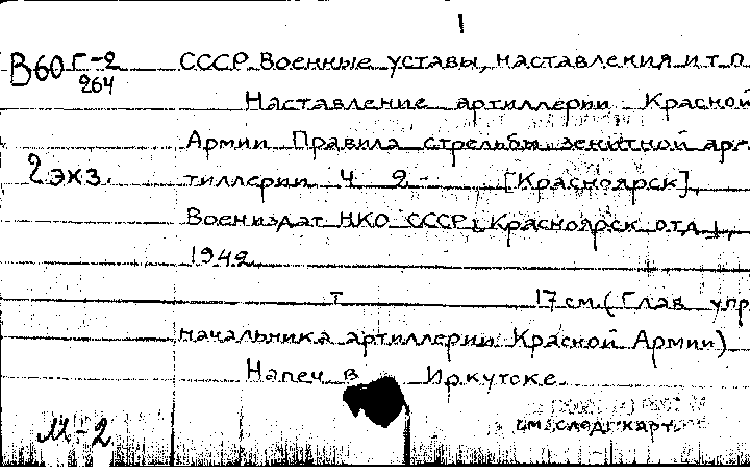 1
В60 Г-2
264
СССР. Военные уставы, наставления и т.п.
Наставление артиллерии Красной
Армии Правила стрельбы зенитной ар-
2 экз.
тиллерии Ч 2 [Красноярск],
Воениздат НКО СССР, Красноярск. отд.,
1942.
т 17 см. (Глав упр
начальника артиллерии Красной Армии)
Напеч в Иркутске
11-2
см. след. карт.